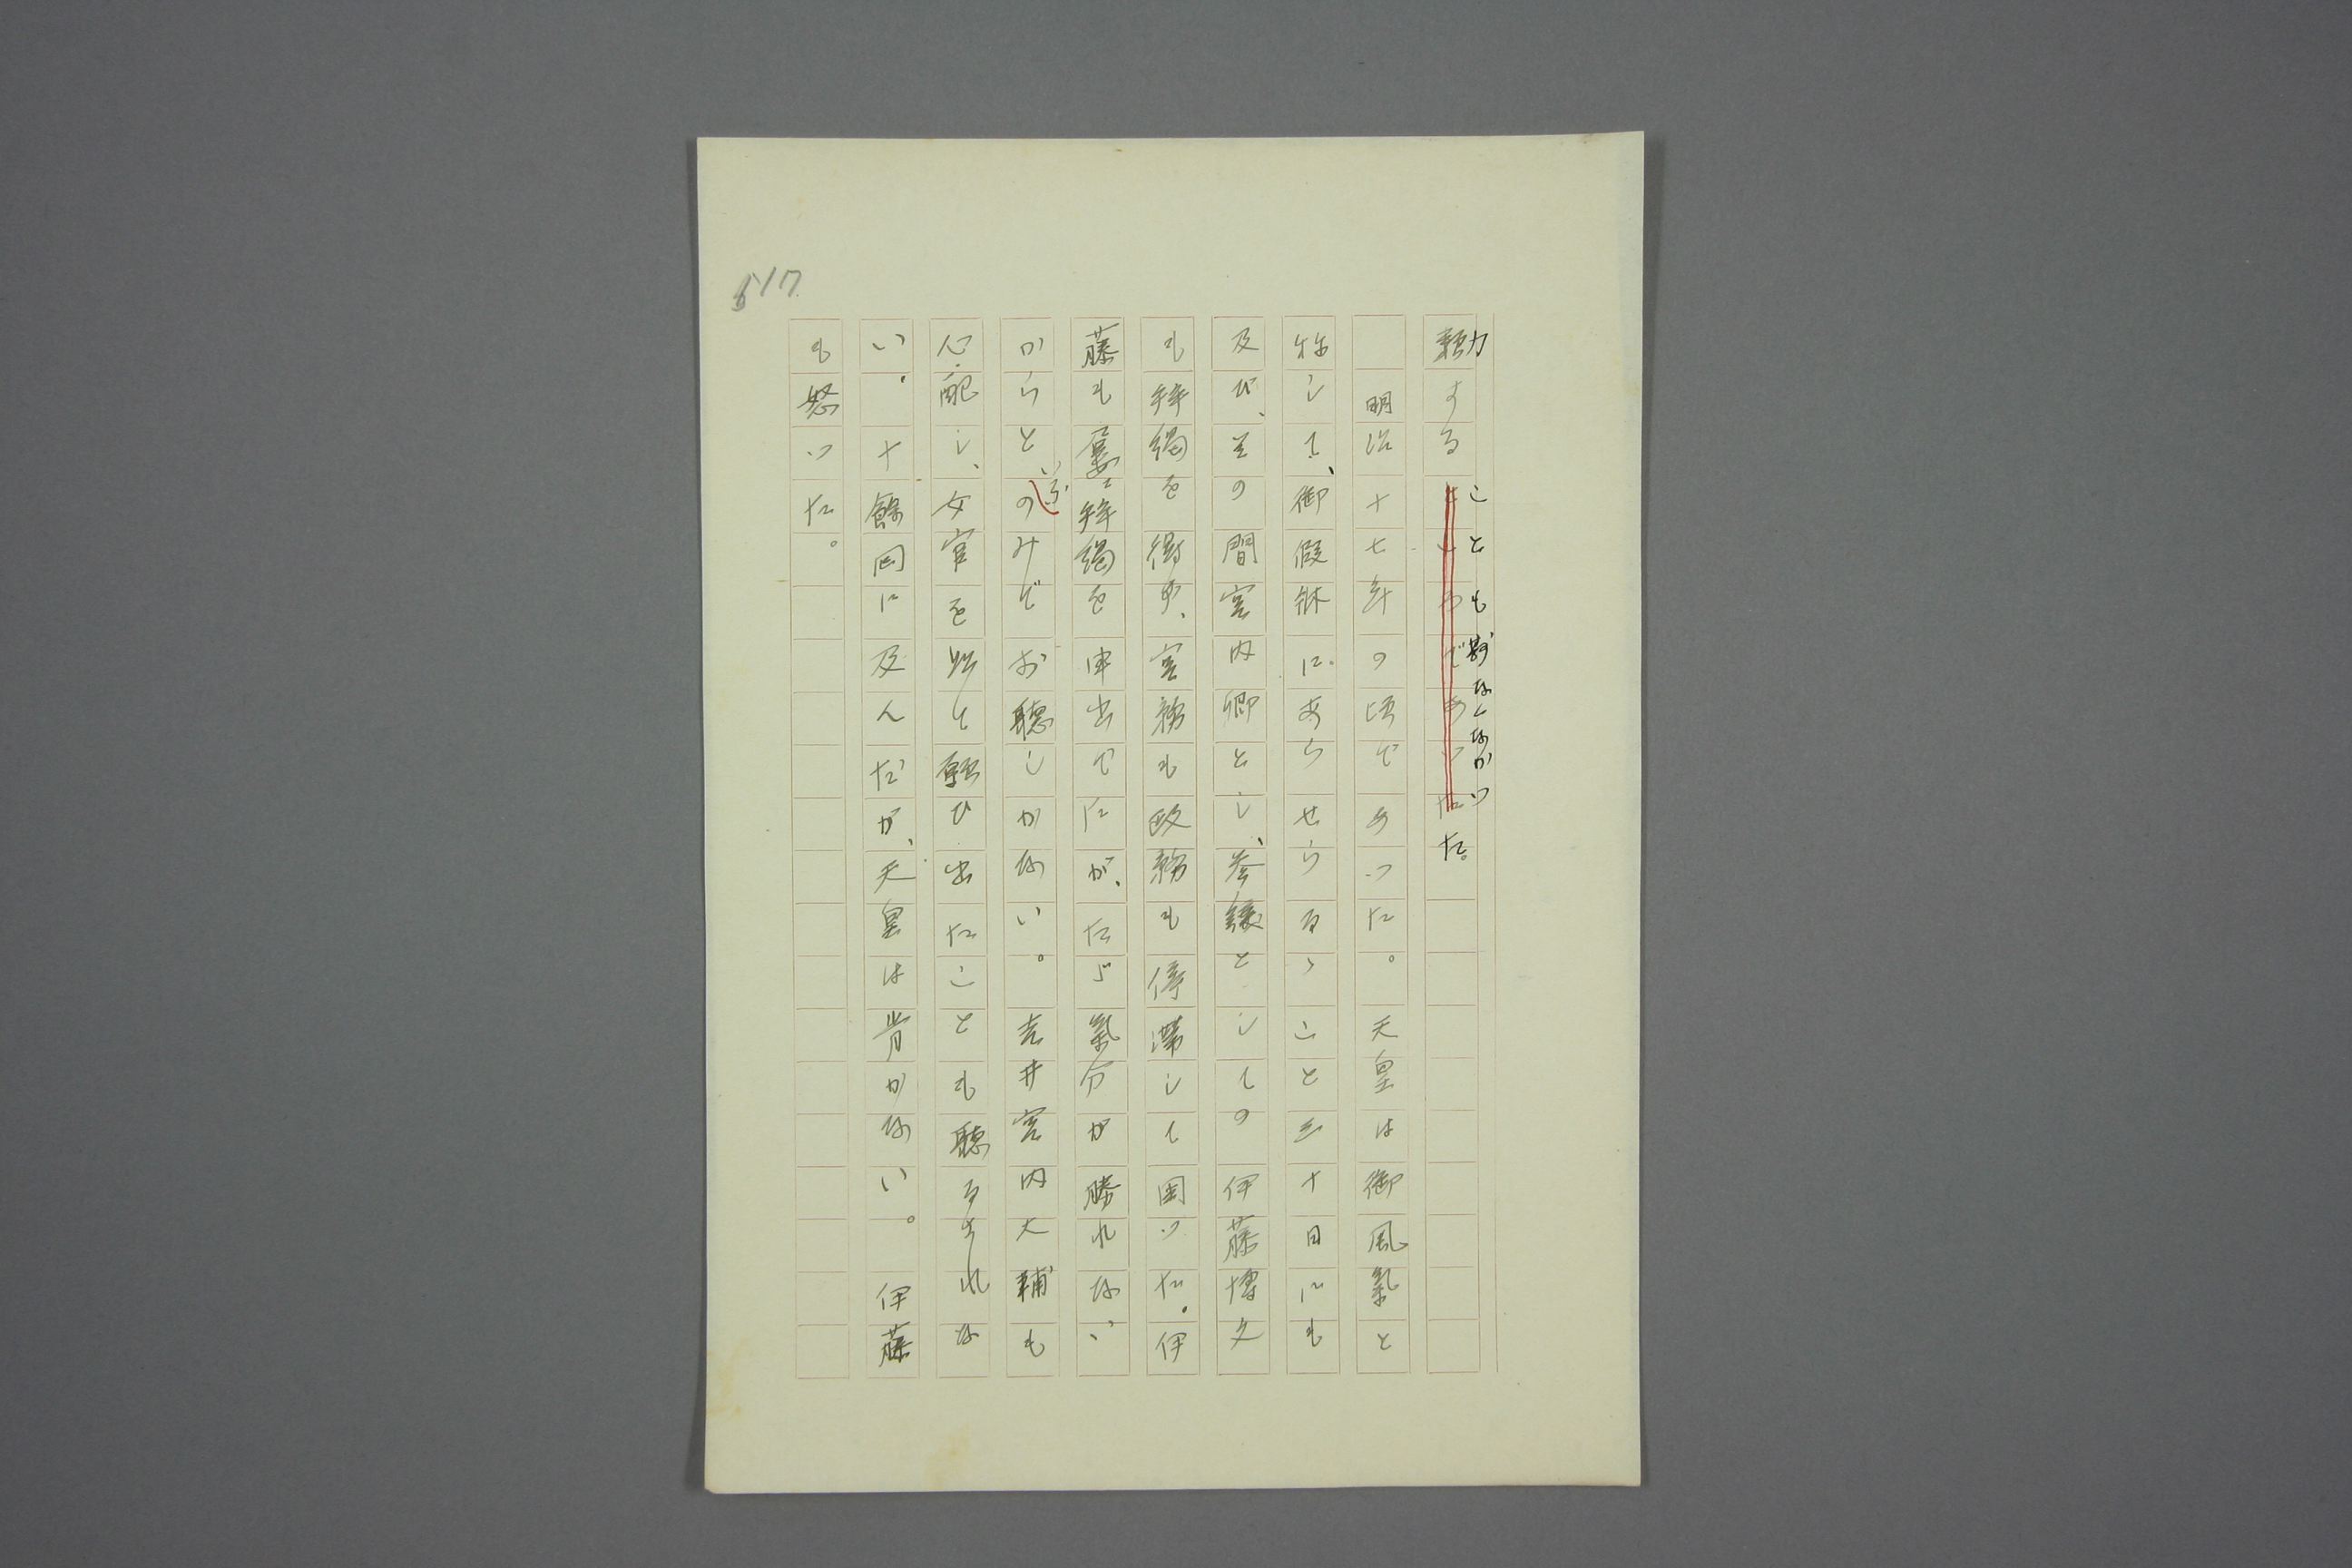 517
することも尠なくなかつた。
明治十七年の頃であつた。天皇は御風氣と
称して、御假牀にあらせらるゝこと三十日にも
及び、その間宮内卿とし、参議としての伊藤博文
も拝謁を得ず、宮務も政務も停滞して困つた。伊
藤も屡々拝謁を申出でたが、たゞ氣分が勝れない
からとのみでお聽しがない。吉井宮内大輔も
心配し、女官を以て願ひ出たことも聽るされな
い。十餘回に及んだが、天皇は肯かない。伊藤
も怒つた。